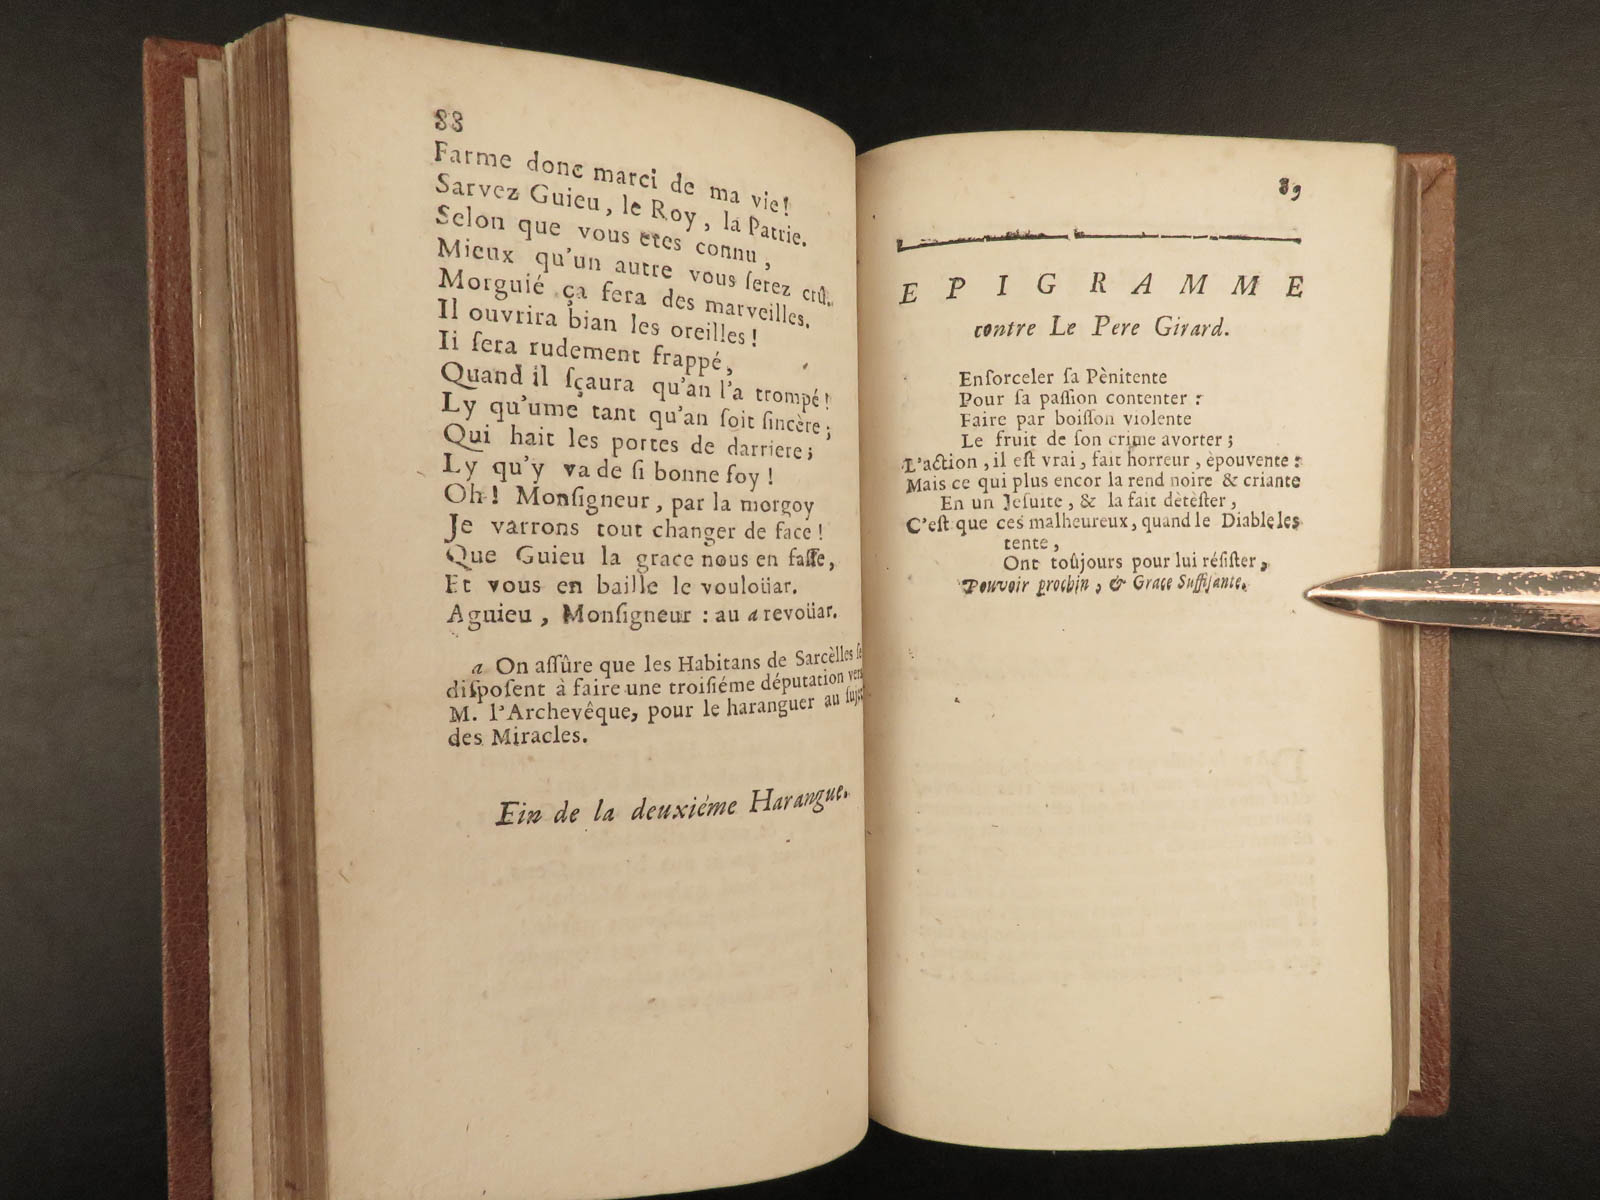 88
Farme donc marci de ma vie!
Sarvez Guieu, le Roy, la Patrie.
Selon que vous étes connu,
Mieux qu'un autre vous ſerez crû.
Morguié ça ſera des marveilles.
Il ouvrira bian les oreilles!
Ii ſera rudement frappé,
Quand il ſçaura qu'an l'a trompé!
Ly qu'ume tant qu'an ſoit ſincère;
Qui hait les portes de darriere;
Ly qu'y va de ſi bonne foy!
Oh! Monſigneur, par la morgoy
Je varrons tout changer de face!
Que Guieu la grace nous en faſſe,
Et vous en baille le vouloüar.
Aguieu, Monſigneur: au a revoüar.
a On aſſûre que les Habitans de Sarcèlles ſe
diſpoſent à faire une troiſiéme députation vers
M. l'Archevêque, pour le haranguer au ſujet
des Miracles.
Fin de la deuxiéme Harangue.
89
EPIGRAMME
contre Le Pere Girard.
Enſorceler ſa Pènitente
Pour ſa paſſion contenter:
Faire par boiſſon violente
Le fruit de ſon crime avorter;
L'action, il eſt vrai, fait horreur, èpouvente:
Mais ce qui plus encor la rend noire & criante
En un Jeſuite, & la fait dètèſter,
C'eſt que ces malheureux, quand le Diable les
tente,
Ont toûjours pour lui réſiſter,
Pouvoir prochin, & Grace Suffiſante.